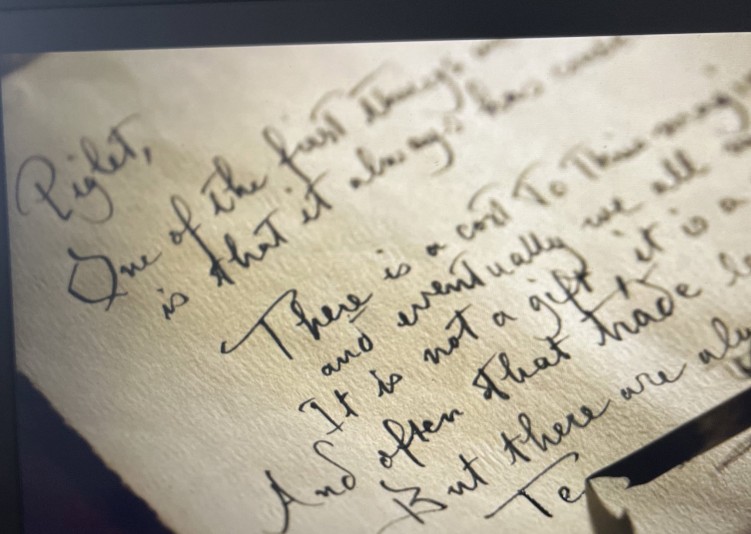 Right,
One of the first things
is that it always has
There is a cost To This
and eventually we all
It is not a gift, it is a
And often that trade
But there are
Te